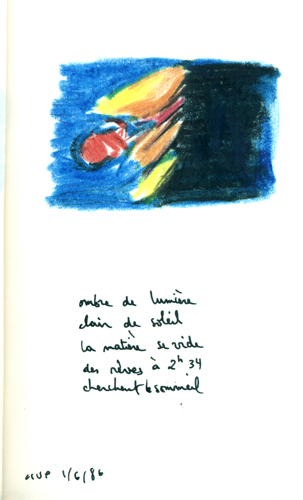 ombre de lumière
clair de soleil
la matière se vide
des rêves à 2h34
cherchent le sommeil
1/6/86